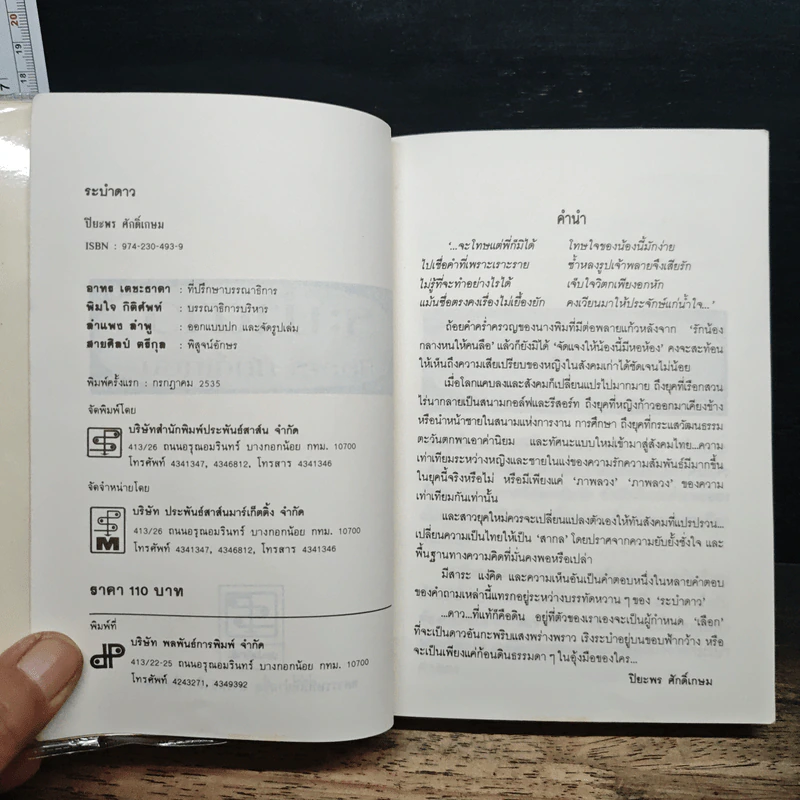 ระบำดาว
ปิยะพร ศักดิ์เกษม
ISBN : 974-230-493-9
อาทร เตชะธาดา : ที่ปรึกษาบรรณาธิการ
พิมใจ กิติศัพท์ : บรรณาธิการบริหาร
ลำแพง ลำพู : ออกแบบปก และจัดรูปเล่ม
สายศิลป์ ตรีกุล : พิสูจน์อักษร
พิมพ์ครั้งแรก : กรกฎาคม 2535
จัดพิมพ์โดย
บริษัทสำนักพิมพ์ประพันธ์สาส์น จำกัด
413/26 ถนนอรุณอมรินทร์ บางกอกน้อย กทม. 10700
โทรศัพท์ 4341347, 4346812, โทรสาร 4341346
จัดจำหน่ายโดย
บริษัท ประพันธ์สาส์นมาร์เก็ตติ้ง จำกัด
413/26 ถนนอรุณอมรินทร์ บางกอกน้อย กทม. 10700
โทรศัพท์ 4341347, 4346812, โทรสาร 4341346
M
ราคา 110 บาท
พิมพ์ที่
บริษัท พลพันธ์การพิมพ์ จำกัด
413/22-25 ถนนอรุณอมรินทร์ บางกอกน้อย กทม. 10700
โทรศัพท์ 4243271, 4349392
คำนำ
'...จะโทษแต่พี่ก็มิได้ โทษใจของน้องนี้มักง่าย
ไปเชื่อคำที่เพราะเราะราย ช้ำหลงรูปเจ้าพลายจึงเสียรัก
ไม่รู้ที่จะทำอย่างไรได้ เจ็บใจวิตกเพียงอกหัก
แม้นซื่อตรงคงเรื่องไม่เยื้องยัก คงเวียนมาให้ประจักษ์แก่น้ำใจ...'
ถ้อยคำคร่ำครวญของนางพิมที่มีต่อพลายแก้วหลังจาก 'รักน้อง
กลางหนให้คนลือ' แล้วก็ยังมิได้ 'จัดแจงให้น้องนี้มีหอห้อง' คงจะสะท้อน
ให้เห็นถึงความเสียเปรียบของหญิงในสังคมเก่าได้ชัดเจนไม่น้อย
เมื่อโลกแคบลงและสังคมก็เปลี่ยนแปรไปมากมาย ถึงยุคที่เรือกสวน
ไร่นากลายเป็นสนามกอล์ฟและรีสอร์ท ถึงยุคที่หญิงก้าวออกมาเคียงข้าง
หรือนำหน้าชายในสนามแห่งการงาน การศึกษา ถึงยุคที่กระแสวัฒนธรรม
ตะวันตกพาเอาค่านิยม และทัศนะแบบใหม่เข้ามาสู่สังคมไทย...ความ
เท่าเทียมระหว่างหญิงและชายในแง่ของความรักความสัมพันธ์มีมากขึ้น
ในยุคนี้จริงหรือไม่ หรือมีเพียงแค่ 'ภาพลวง' 'ภาพลวง' ของความ
เท่าเทียมกันเท่านั้น
และสาวยุคใหม่ควรจะเปลี่ยนแปลงตัวเองให้ทันสังคมที่แปรปรวน...
เปลี่ยนความเป็นไทยให้เป็น 'สากล' โดยปราศจากความยับยั้งชั่งใจ และ
พื้นฐานทางความคิดที่มั่นคงพอหรือเปล่า
มีสาระ แง่คิด และความเห็นอันเป็นคำตอบหนึ่งในหลายคำตอบ
ของคำถามเหล่านี้แทรกอยู่ระหว่างบรรทัดหวาน ๆ ของ 'ระบำดาว'
...ดาว...ที่แท้ก็คือดิน อยู่ที่ตัวของเราเองจะเป็นผู้กำหนด 'เลือก'
ที่จะเป็นดาวอันกะพริบแสงพร่างพราว เริงระบำอยู่บนขอบฟ้ากว้าง หรือ
จะเป็นเพียงแค่ก้อนดินธรรมดา ๆ ในอุ้งมือของใคร...
ปิยะพร ศักดิ์เกษม
17
18
19
20